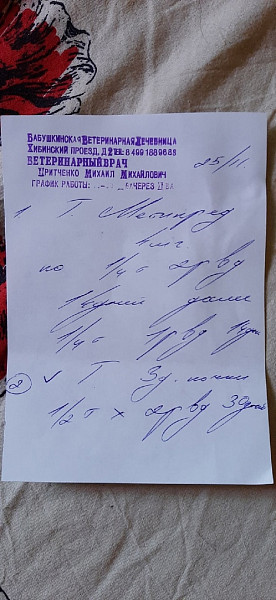 Бабушкинская Ветеринарная Лечебница
Хибинский проезд, д2 тел: 8 499 1889688
Ветеринарный врач
Притченко Михаил Михайлович
График работы: через
25/11
1 Т. Метипред
по 1/4 т 2р вд
далее
1/4 т 1р вд
2 ✓ Т Зд. почки
1/2 т х 2р вд 30 дней